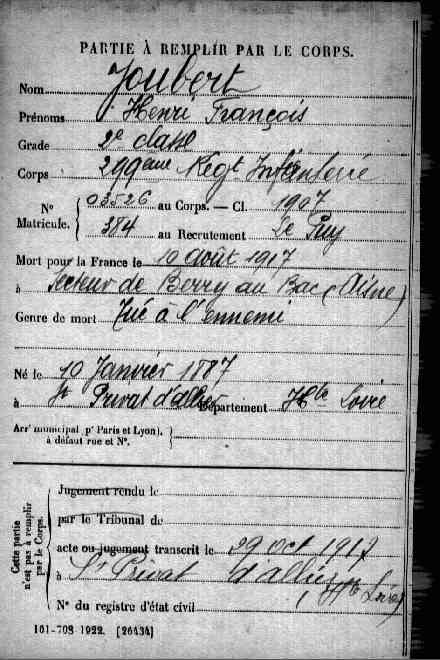 PARTIE À REMPLIR PAR LE CORPS.
Nom Joubert
Prénoms Henri François
Grade 2e classe
Corps 299ème Régt Infanterie
No Matricule. { 03526 au Corps. — Cl. 1907
384 au Recrutement Le Puy
Mort pour la France le 10 août 1917
à Secteur de Berry au Bac (Aisne)
Genre de mort Tué à l'ennemi
Né le 10 Janvier 1887
à St Privat d'allier Département Hte Loire
Arrt municipal (pr Paris et Lyon),
à défaut rue et No.
Cette partie n'est pas à remplir par le Corps.
Jugement rendu le
par le Tribunal de
acte ou jugement transcrit le 29 Oct 1917
à St Privat d'allier
(Hte Loire)
No du registre d'état civil
101-708 1922. [26434]